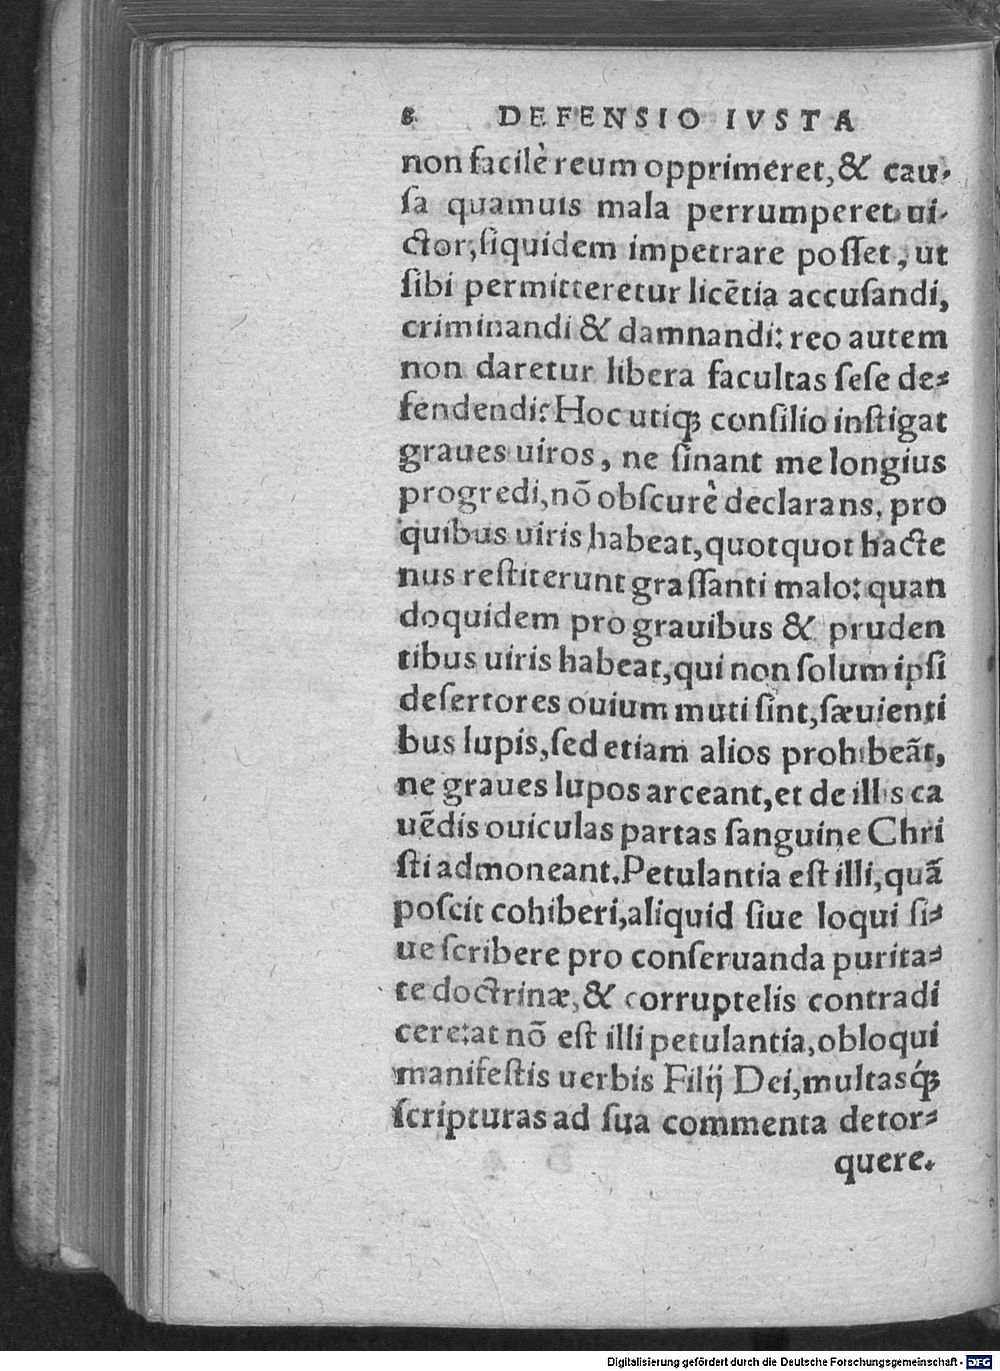 8 DEFENSIO IVSTA
non facilè reum opprimeret, & cau-
ſa quamuis mala perrumperet ui-
ctor, ſiquidem impetrare poſſet, ut
ſibi permitteretur licẽtia accuſandi,
criminandi & damnandi: reo autem
non daretur libera facultas ſeſe de-
fendendi? Hoc utiqꝫ conſilio inſtigat
graues uiros, ne ſinant me longius
progredi, nõ obſcurè declarans, pro
quibus uiris habeat, quotquot hacte
nus reſtiterunt graſſanti malo: quan
doquidem pro grauibus & pruden
tibus uiris habeat, qui non ſolum ipſi
deſertores ouium muti ſint, ſæuienti
bus lupis, ſed etiam alios prohibeãt,
ne graues lupos arceant, et de illis ca
uẽdis ouiculas partas ſanguine Chri
ſti admoneant. Petulantia eſt illi, quã
poſcit cohiberi, aliquid ſiue loqui ſi-
ue ſcribere pro conſeruanda purita-
te doctrinæ, & corruptelis contradi
cere: at nõ eſt illi petulantia, obloqui
manifeſtis uerbis Filij Dei, multasq́ꝫ
ſcripturas ad ſua commenta detor-
quere.
Digitalisierung gefördert durch die Deutsche Forschungsgemeinschaft - DFG